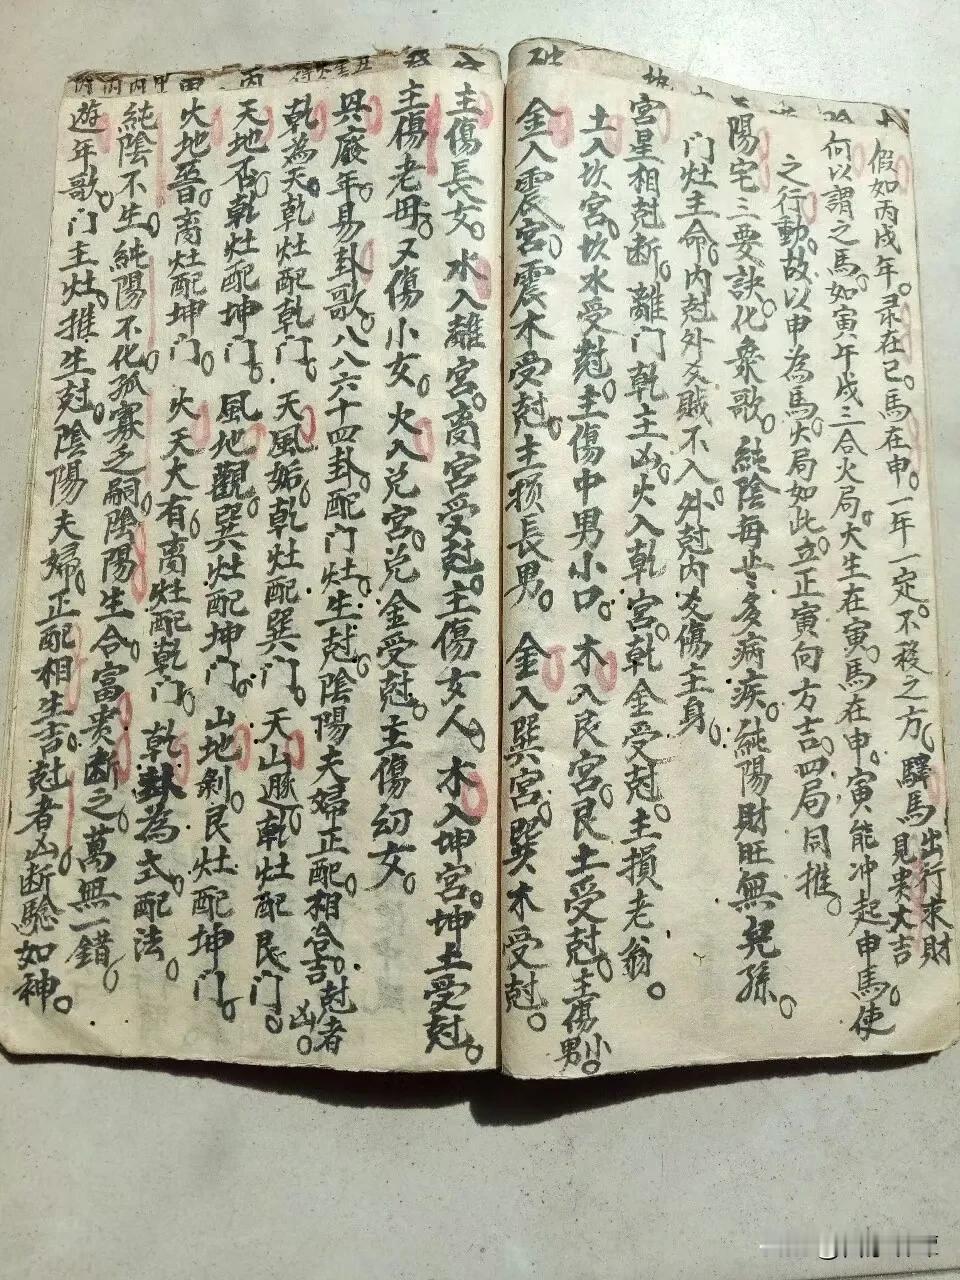 假如丙戌年。录在巳。馬在申。一年一定。不移之方。驛馬出行求財見贵大吉
何以謂之馬。如寅午戌三合火局。火生在寅。馬在申。寅能冲起申馬。使
之行動。故以申為馬。火局如此。立正寅向方吉。四局同推。
陽宅三要訣。化彖歌。純陰每苦多病疾。純陽財旺無兒孫。
門灶主命。内尅外交贼不入。外尅内交傷主身。
宫星相尅断。離门乾主凶。火入乾宫。乾金受尅。主損老翁。
土入坎宫。坎水受尅。主傷中男小口。木入艮宫。艮土受尅。主傷小男。
金入震宫。震木受尅。主损長男。金入巽宫。巽木受尅。
主傷長女。水入離宫。离宫受尅。主傷女人。木入坤宫。坤土受尅。
主傷老母。又傷小女。火入兑宫。兑金受尅。主傷幼女。
與廢年。易卦歌。八八六十四卦。配门灶。生尅。陰陽夫婦正配。相合吉。尅者凶。
乾為天。乾灶配乾门。天風姤。乾灶配巽门。天山遯。乾灶配艮门。
天地否。乾灶配坤门。風地觀。巽灶配坤门。山地剝。艮灶配坤门。
火地晋。离灶配坤门。火天大有。离灶配乾门。乾卦為式配法。
純陰不生。純陽不化。孤寡乏嗣。陰陽生合。富贵断之。萬無一錯。
遊年歌。门主灶。推生尅。陰陽夫婦。正配相生吉。尅者凶。断驗如神。